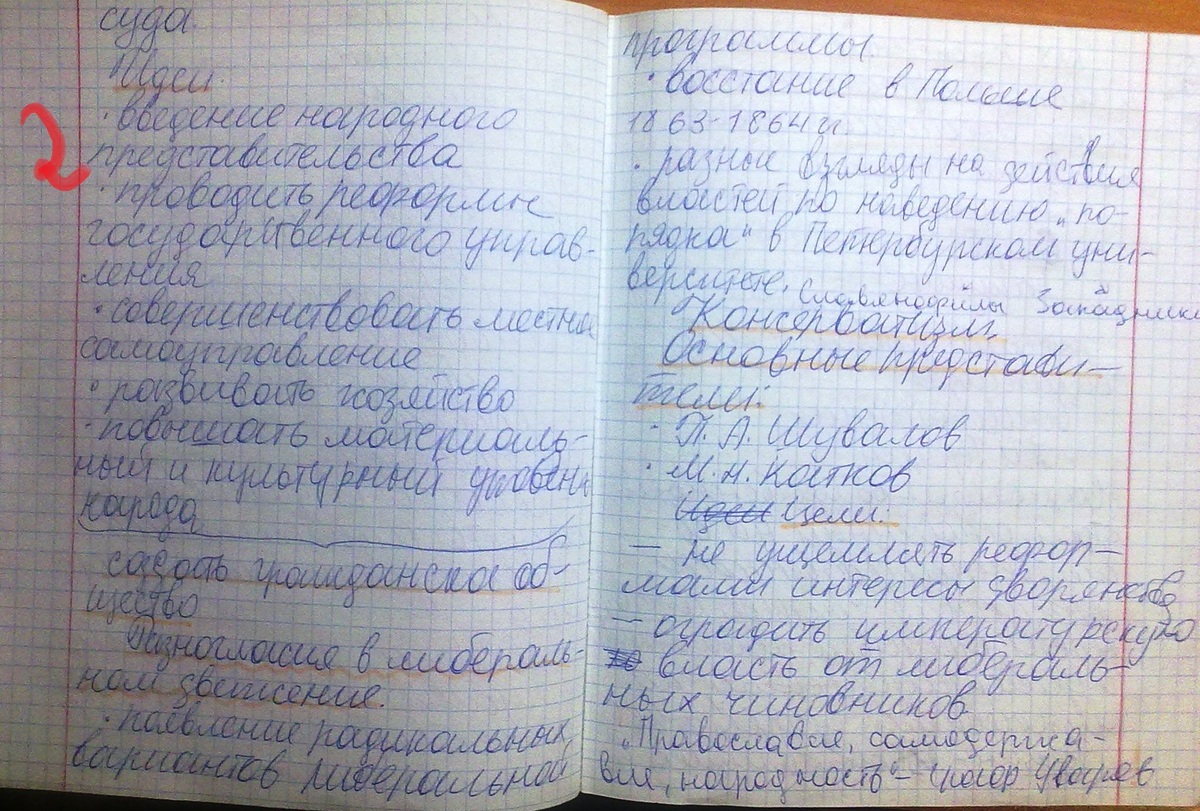 суда
Идеи:
· введение народного
представительства
· проводить реформы
государственного управ-
ления
· совершенствовать местное
самоуправление
· развивать хозяйство
· повышать материаль-
ный и культурный уровень
народа
создать гражданское об-
щество
Разногласия в либераль-
ном движение.
· появление радикальных
вариантов либеральной
программы.
· восстание в Польше
1863-1864гг.
· разные взгляды на действия
властей по наведению „по-
рядка" в Петербурском уни-
верситете. Славянофилы Западники
Консерватизм.
Основные представи-
тели:
· П. А. Шувалов
· М. Н. Катков
Идеи Цели:
— не ущемлять рефор-
мами интересы дворянства
— оградить импературскую
власть от либераль-
ных чиновников
„Православие, самодержа-
вие, народность" – граф Уваров